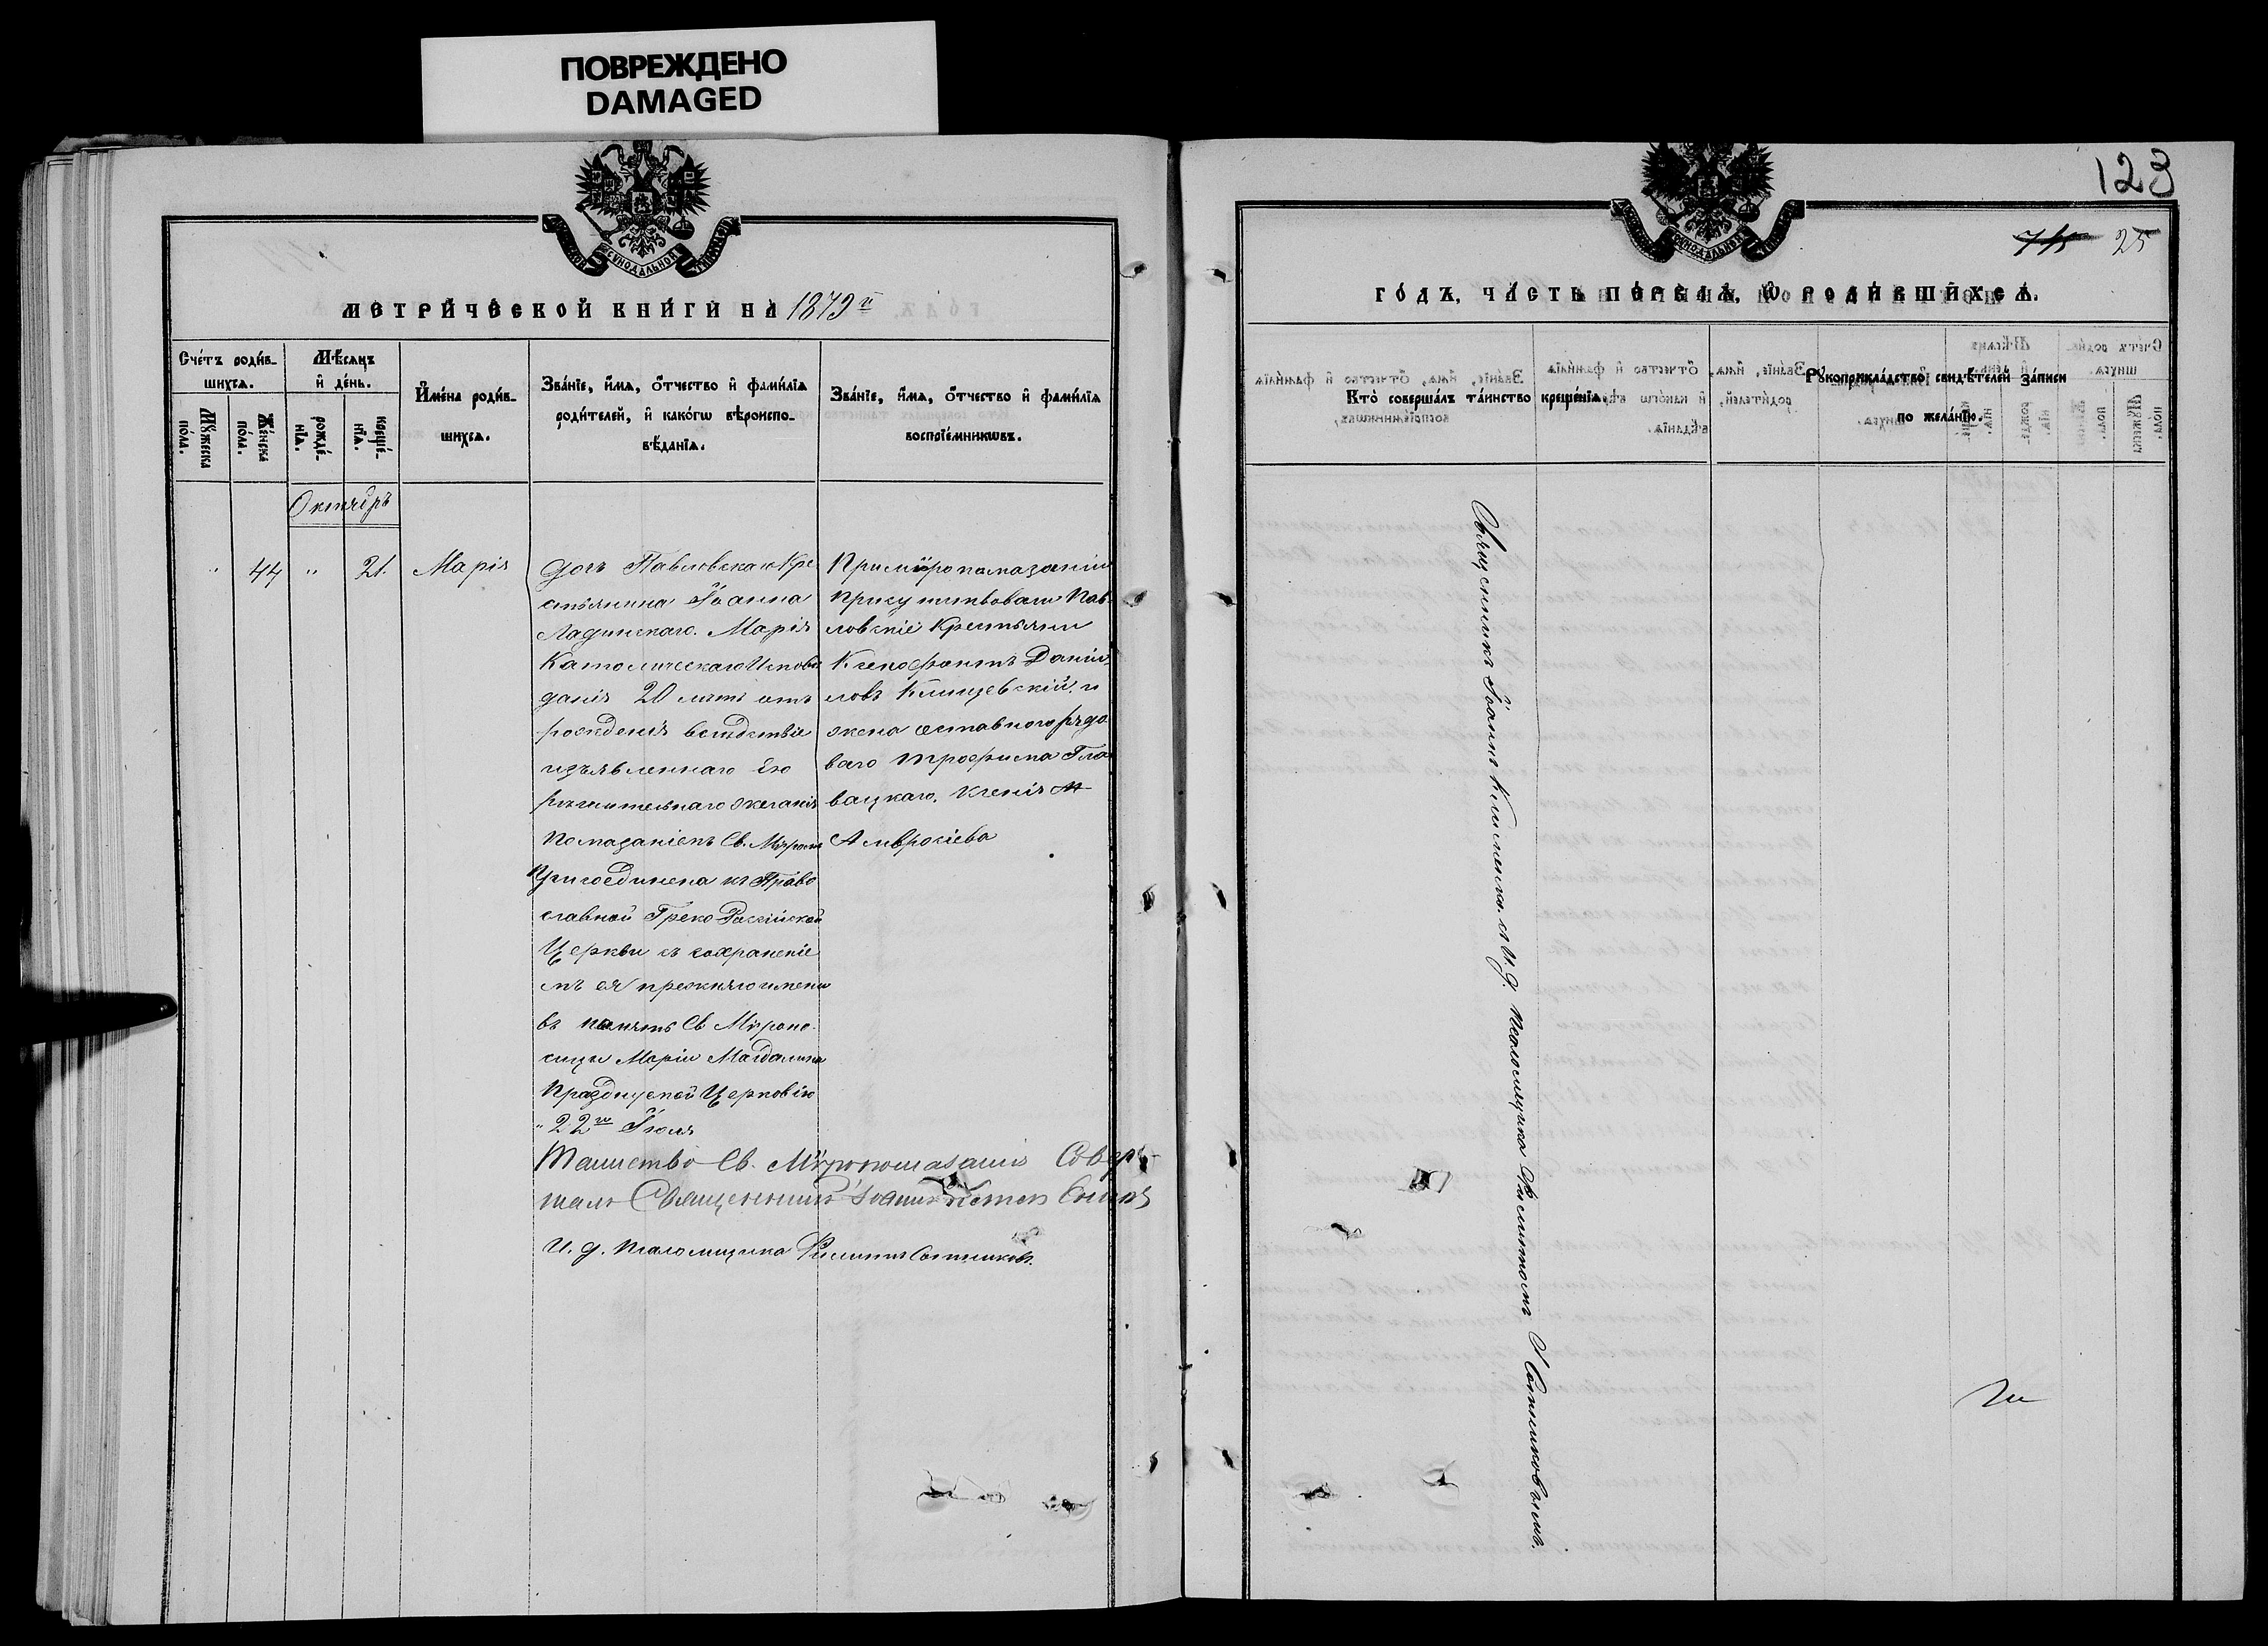 ПОВРЕЖДЕНО
DAMAGED
МЕТРИ́ЧЕСКОЙ КНИ́ГИ НА 1879й
Сче́тъ роди́в-
шихся.
Мѣ́сяцъ
и де́нь.
Му́жеска по́ла.
Же́нска по́ла.
рожде́-
нїя.
креще́-
нїя.
Имена́ роди́в-
шихся.
Зва́нїе, и́мя, о́тчество и фами́лїя
роди́телей, и како́гѡ вѣроиспо-
вѣ́данїя.
Зва́нїе, и́мя, о́тчество и фами́лїя
воспрїе́мникѡвъ.
Октябрь
" 44 " 21. Марія
дочь Павловскаго Кре
стьянина Іоанна
Ладинскаго. Марія
Католическаго Испове
данія 20 лѣтъ отъ
рожденія вслѣдствіе
изъявленнаго Ею
рѣшительнаго желанія
Помазаніемъ Св. Мѵромъ
Присоединена къ Право
славной Греко Россійской
Церкви съ сохраненіе
мъ ея прежняго имени
въ память Св Мѵроно-
сицы Маріи Магдалины
Празднуемой Церковію
" 22го Іюля
При мѵропомазаніи
присутствовали Пав-
ловскіе Крестьяни
Ксенофонтъ Даніи-
ловъ Клищевскій. и
жена отставного рядо
ваго Трофима Гла
вацкаго. Ксенія
Амвросіева
Таинство Св. Мѵропомазанія Совер-
шалъ Священникъ Іоаннъ
И. д. Псаломщика Филиппъ Сотниковъ.
123
25
ГО́ДЪ, ЧА́СТЬ ПЕ́РВАЯ, Ѡ РОДИ́ВШИХСЯ.
Кто̀ соверша́лъ та́инство креще́нїя.
Рукоприкла́дство свидѣ́телей за́писи
по жела́нїю.
Священникъ Іоаннъ съ И. д. Псаломщика Филиппомъ Сотниковымъ.